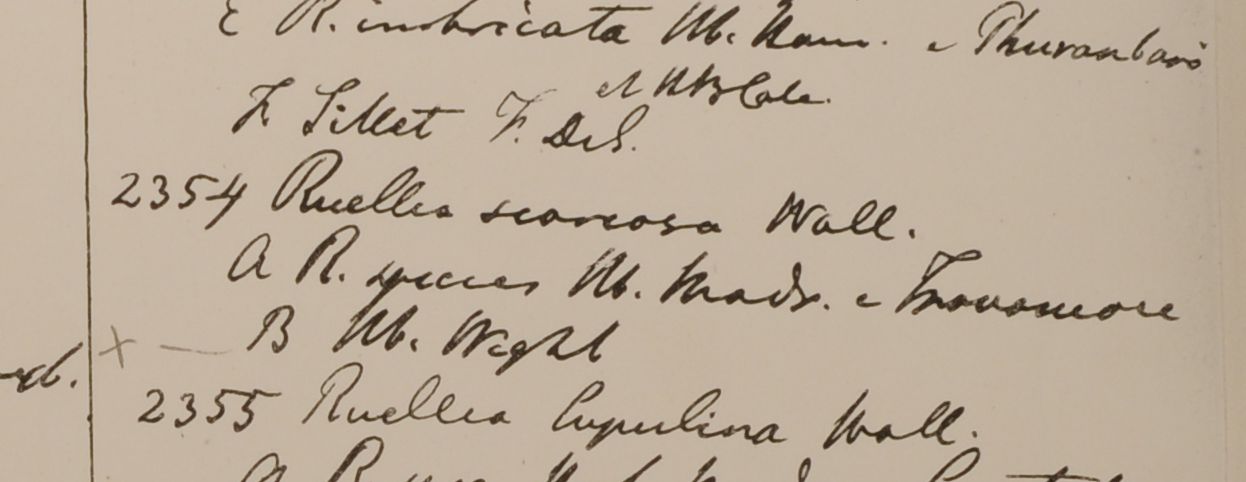 E R. imbricata Hb. Ham. e Thuranbari
et HBCalc.
F Sillet F. DeS.
2354 Ruellia scariosa Wall.
A R. species Hb. Madr. e Travancore
B Hb. Wight
2355 Ruellia Cupulina Wall.